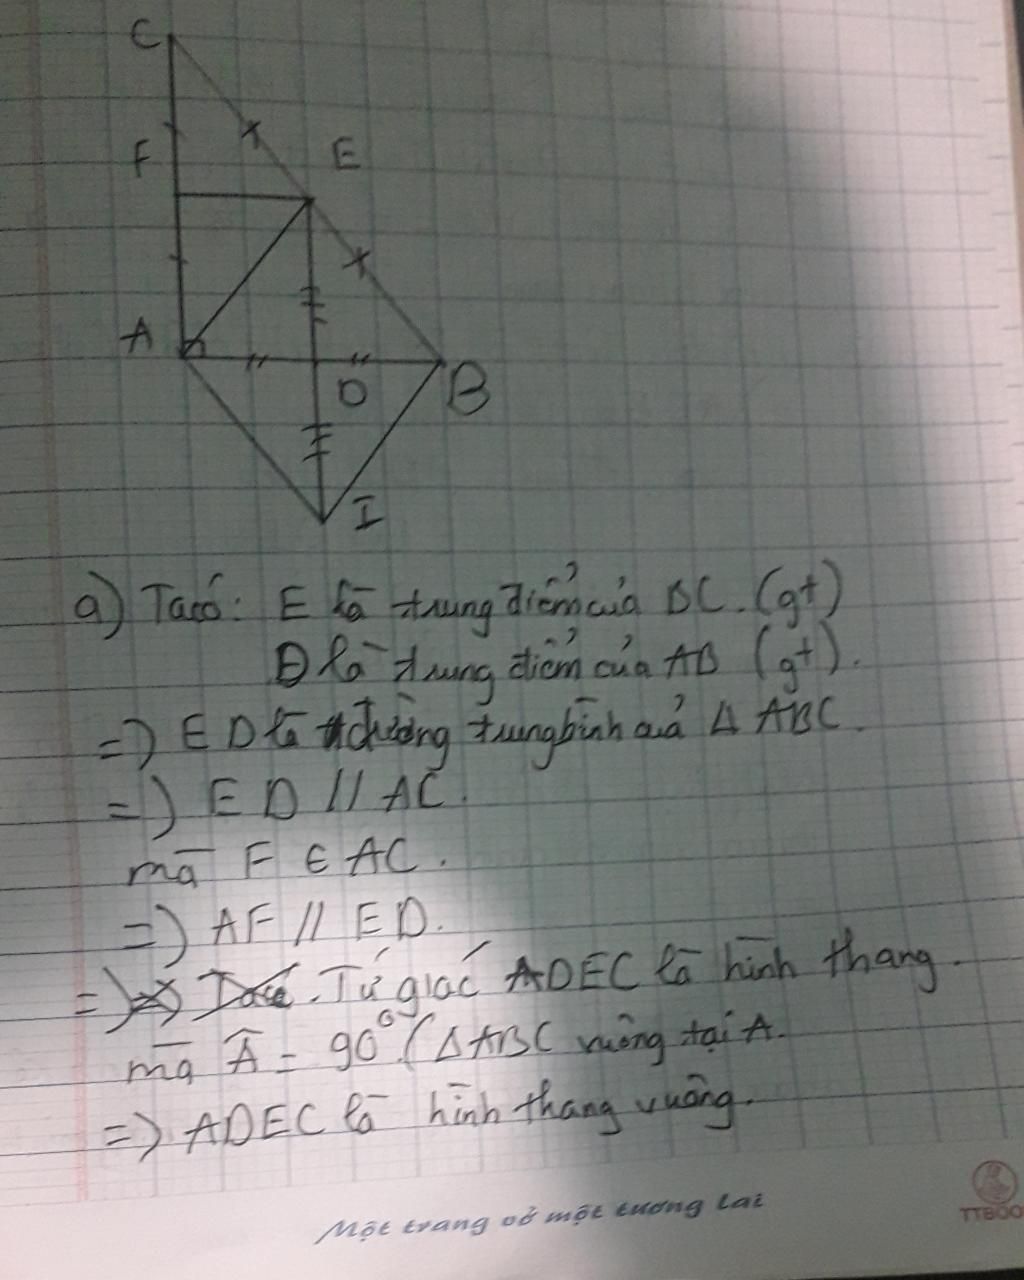 C
F
E
A
D
B
I
a) Ta có: E là trung điểm của BC. (gt)
D là trung điểm của AB (gt).
=> ED là đường trung bình của Δ ABC.
=> ED // AC.
mà F ∈ AC.
=> AF // ED.
=> Tứ giác ADEC là hình thang.
mà Â = 90° (Δ ABC vuông tại A.
=> ADEC là hình thang vuông.
Một trang vở một tương lai
TTBOO